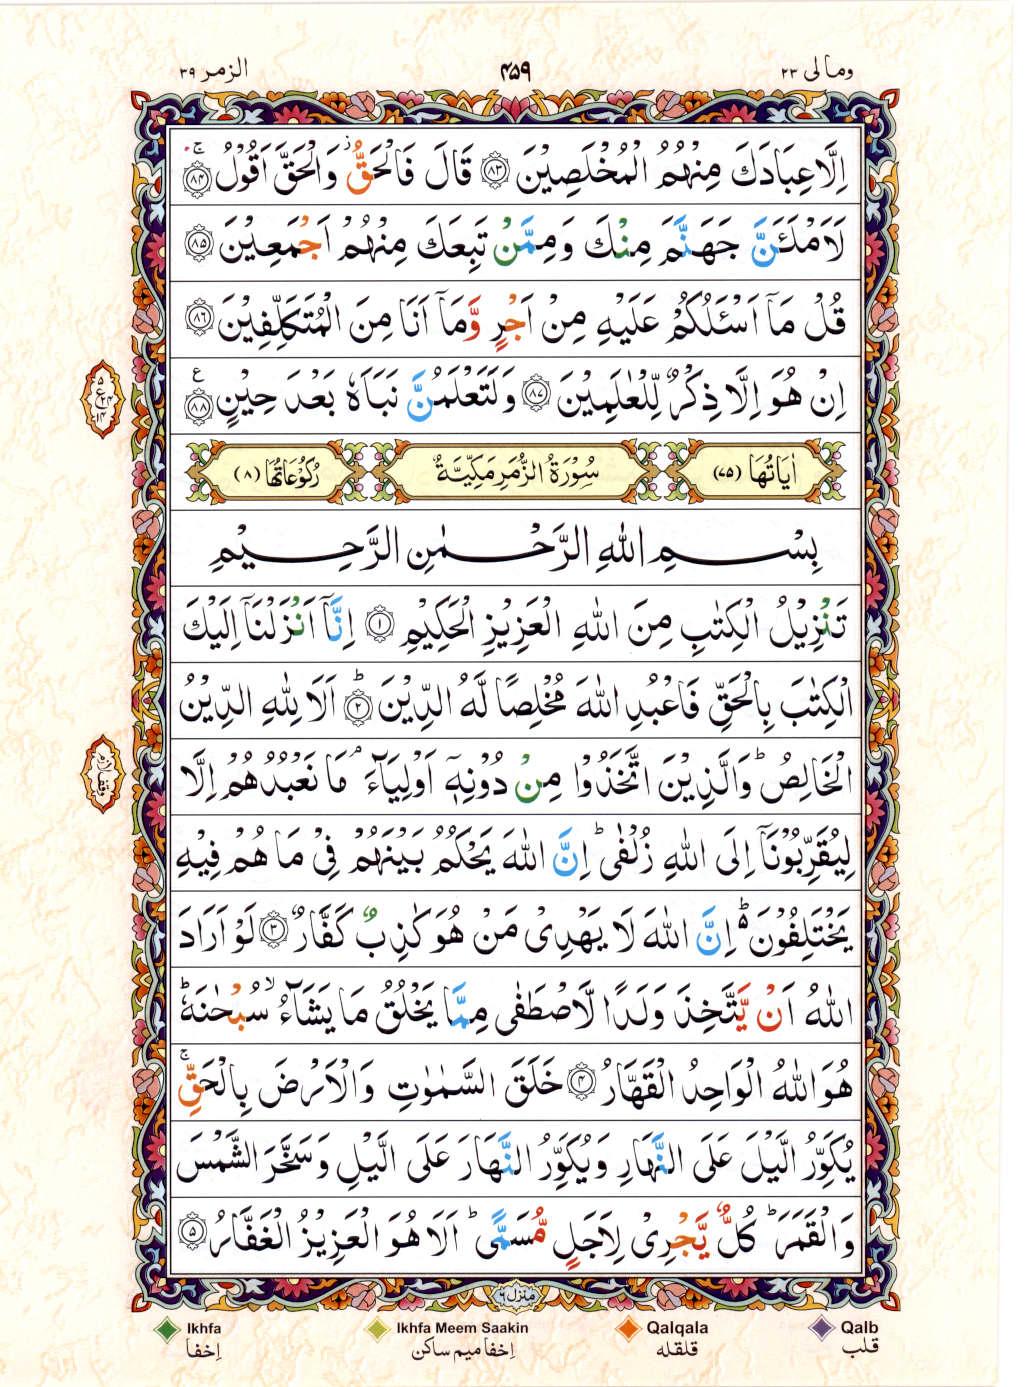 ومالی ۲۳
۴۵۹
الزمر ۳۹
اِلَّا عِبَادَكَ مِنْهُمُ الْمُخْلَصِيْنَ ۝۸۳ قَالَ فَالْحَقُّ ز وَالْحَقَّ اَقُوْلُ ج ۝۸۴
لَاَمْلَـَٔنَّ جَهَنَّمَ مِنْكَ وَمِمَّنْ تَبِعَكَ مِنْهُمْ اَجْمَعِيْنَ ۝۸۵
قُلْ مَاۤ اَسْـَٔلُكُمْ عَلَيْهِ مِنْ اَجْرٍ وَّمَاۤ اَنَا مِنَ الْمُتَكَلِّفِيْنَ ۝۸۶
اِنْ هُوَ اِلَّا ذِكْرٌ لِّلْعٰلَمِيْنَ ۝۸۷ وَلَتَعْلَمُنَّ نَبَاَهٗ بَعْدَ حِيْنٍ ع ۝۸۸
اٰيَاتُهَا (۷۵) سُوْرَةُ الزُّمَرِ مَكِّيَّةٌ رُكُوْعَاتُهَا (۸)
بِسْمِ اللّٰهِ الرَّحْمٰنِ الرَّحِيْمِ
تَنْزِيْلُ الْكِتٰبِ مِنَ اللّٰهِ الْعَزِيْزِ الْحَكِيْمِ ۝۱ اِنَّاۤ اَنْزَلْنَاۤ اِلَيْكَ
الْكِتٰبَ بِالْحَقِّ فَاعْبُدِ اللّٰهَ مُخْلِصًا لَّهُ الدِّيْنَ ؕ ۝۲ اَلَا لِلّٰهِ الدِّيْنُ
الْخَالِصُ ؕ وَالَّذِيْنَ اتَّخَذُوْا مِنْ دُوْنِهٖۤ اَوْلِيَآءَ ۘ مَا نَعْبُدُهُمْ اِلَّا
لِيُقَرِّبُوْنَاۤ اِلَى اللّٰهِ زُلْفٰى ؕ اِنَّ اللّٰهَ يَحْكُمُ بَيْنَهُمْ فِيْ مَا هُمْ فِيْهِ
يَخْتَلِفُوْنَ ؕ۬ اِنَّ اللّٰهَ لَا يَهْدِيْ مَنْ هُوَ كٰذِبٌ كَفَّارٌ ۝۳ لَوْ اَرَادَ
اللّٰهُ اَنْ يَّتَّخِذَ وَلَدًا لَّاصْطَفٰى مِمَّا يَخْلُقُ مَا يَشَآءُ ۙ سُبْحٰنَهٗ ؕ
هُوَ اللّٰهُ الْوَاحِدُ الْقَهَّارُ ۝۴ خَلَقَ السَّمٰوٰتِ وَالْاَرْضَ بِالْحَقِّ ۚ
يُكَوِّرُ الَّيْلَ عَلَى النَّهَارِ وَيُكَوِّرُ النَّهَارَ عَلَى الَّيْلِ وَسَخَّرَ الشَّمْسَ
وَالْقَمَرَ ؕ كُلٌّ يَّجْرِيْ لِاَجَلٍ مُّسَمًّى ؕ اَلَا هُوَ الْعَزِيْزُ الْغَفَّارُ ۝۵
منزل ۶
Ikhfa Ikhfa Meem Saakin Qalqala Qalb
اِخفا اِخفا میم ساکن قلقله قلب